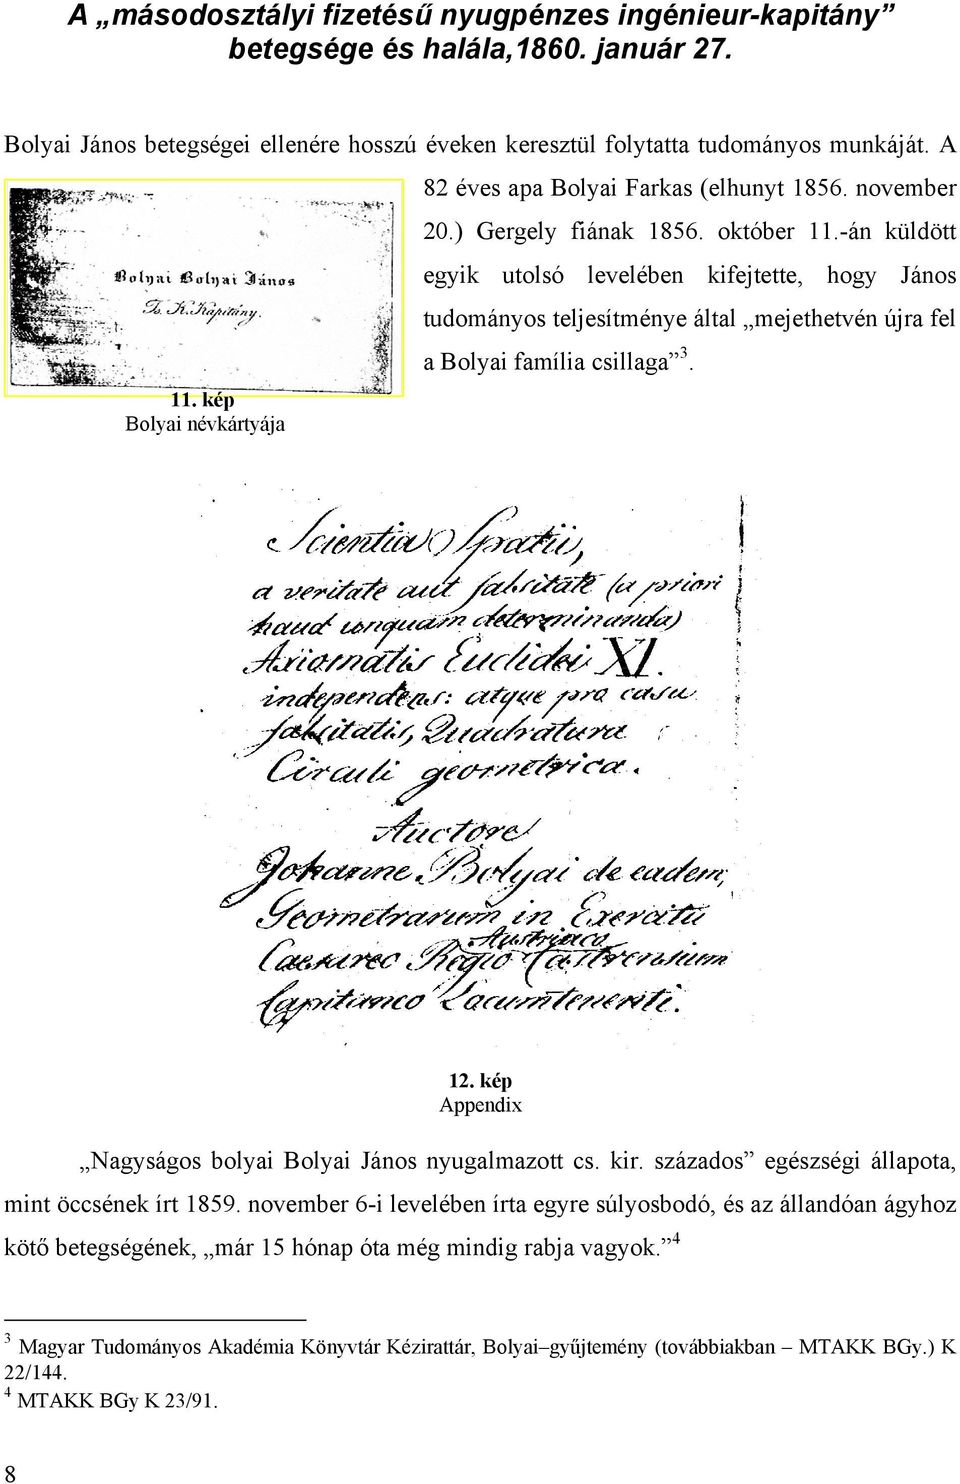 A „másodosztályi fizetésű nyugpénzes ingénieur-kapitány”
betegsége és halála,1860. január 27.
Bolyai János betegségei ellenére hosszú éveken keresztül folytatta tudományos munkáját. A
82 éves apa Bolyai Farkas (elhunyt 1856. november
20.) Gergely fiának 1856. október 11.-án küldött
egyik utolsó levelében kifejtette, hogy János
tudományos teljesítménye által „mejethetvén újra fel
a Bolyai família csillaga” 3.
Bolyai Bolyai János
Ts. K. Kapitány.
11. kép
Bolyai névkártyája
Scientia Spatii,
a veritate aut falsitate (a priori
haud unquam determinanda)
Axiomatis Euclidei XI.
independens: atque pro casu
falsitatis, Quadratura
Circuli geometrica.
Auctore
Johanne Bolyai de eadem,
Geometrarum in Exercitu
Austriaco
Caesareo Regio Castrensium
Capitaneo Locumtenenti.
12. kép
Appendix
„Nagyságos bolyai Bolyai János nyugalmazott cs. kir. százados” egészségi állapota,
mint öccsének írt 1859. november 6-i levelében írta egyre súlyosbodó, és az állandóan ágyhoz
kötő betegségének, „már 15 hónap óta még mindig rabja vagyok.” 4
3 Magyar Tudományos Akadémia Könyvtár Kézirattár, Bolyai–gyűjtemény (továbbiakban – MTAKK BGy.) K
22/144.
4 MTAKK BGy K 23/91.
8